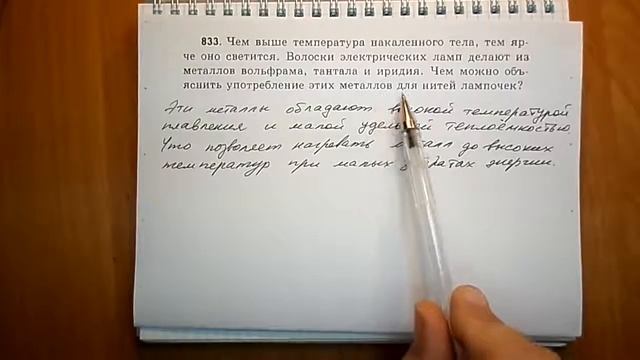 833. Чем выше температура накаленного тела, тем яр-
че оно светится. Волоски электрических ламп делают из
металлов вольфрама, тантала и иридия. Чем можно объ-
яснить употребление этих металлов для нитей лампочек?
Эти металлы обладают высокой температурой
плавления и малой удельной теплоёмкостью,
Что позволяет нагревать металл до высоких
температур при малых затратах энергии.